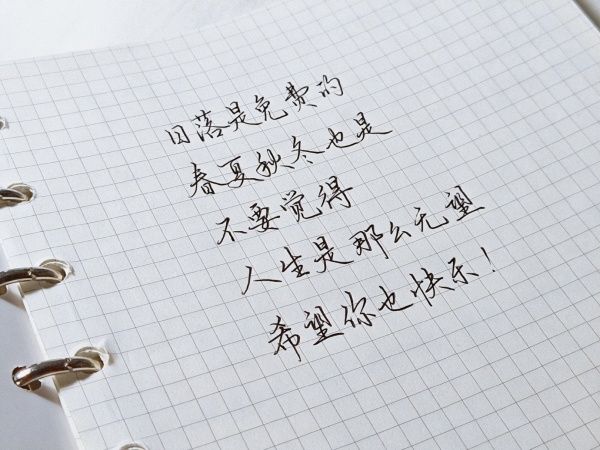 日落是免费的
春夏秋冬也是
不要觉得
人生是那么无望
希望你也快乐！